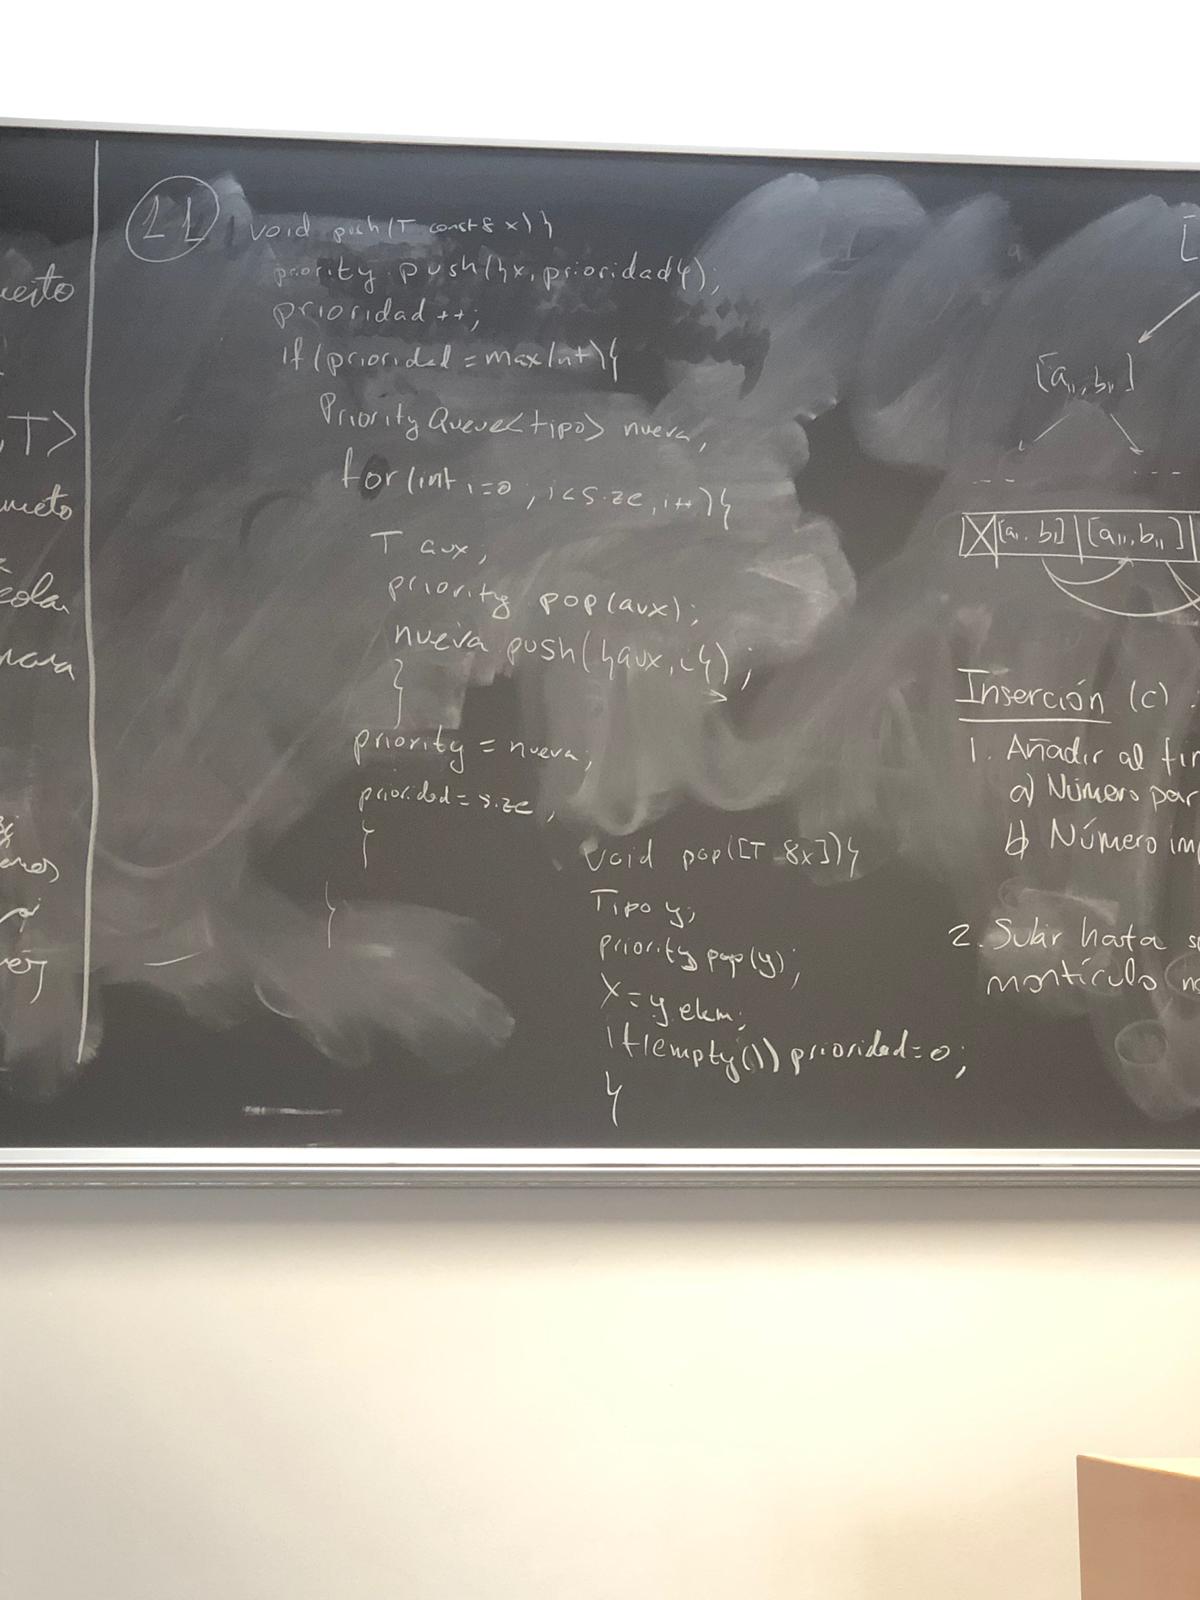 11
void push(T const& x){
priority.push({x, prioridad});
prioridad++;
if(prioridad = maxInt){
PriorityQueue<tipo> nueva;
for(int i=0; i<size; i++){
T aux;
priority.pop(aux);
nueva.push({aux, i});
}
priority = nueva;
prioridad = size;
}
}
void pop([T &x]){
Tipo y;
priority.pop(y);
x = y.elem;
if(empty()) prioridad = 0;
}
, T>
[a11, b11]
[a1, b1] [a11, b11]
Inserción (c).
1. Añadir al
a) Número par
b) Número
2. Subir hasta
montículo